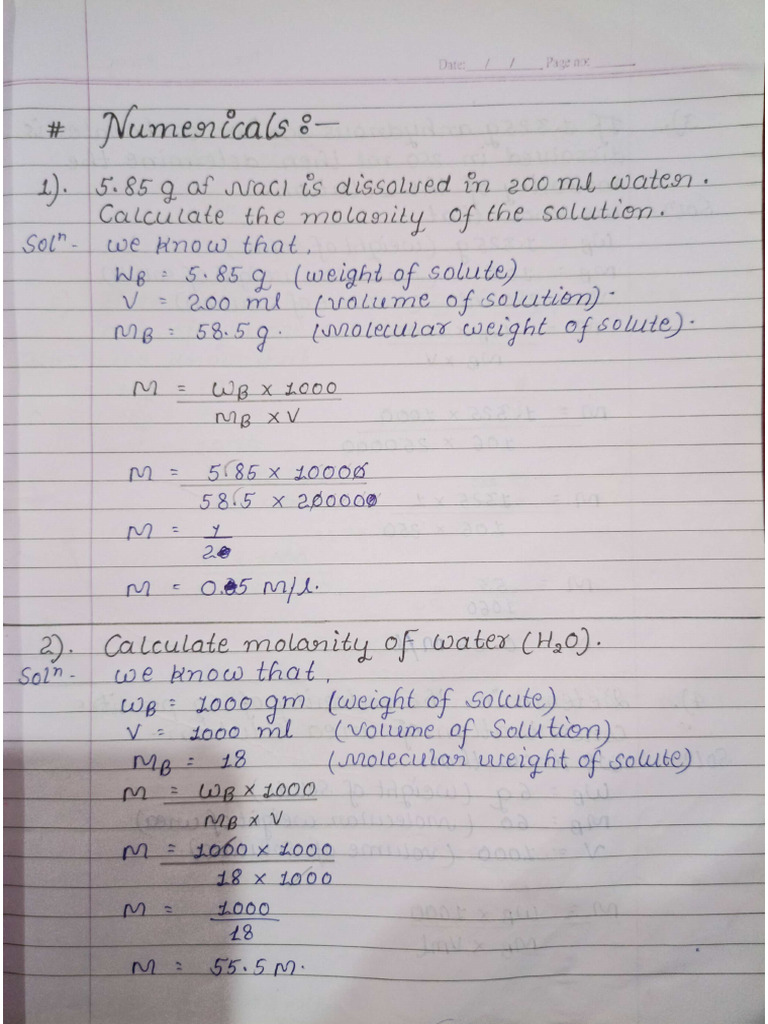 Date: / / Page no:
# Numericals :-
1). 5.85 g of NaCl is dissolved in 200 ml water.
Calculate the molarity of the solution.
Solⁿ- we know that,
WB = 5.85 g (weight of solute)
V = 200 ml (volume of solution).
MB = 58.5 g. (Molecular weight of solute).
M = WB × 1000
MB × V
M = 5.85 × 1000
58.5 × 200
M = 1
2
M = 0.5 M/l.
2). Calculate molarity of water (H₂O).
Solⁿ- we know that,
WB = 1000 gm (weight of solute)
V = 1000 ml (volume of solution)
MB = 18 (Molecular weight of solute)
M = WB × 1000
MB × V
M = 1000 × 1000
18 × 1000
M = 1000
18
M = 55.5 M.